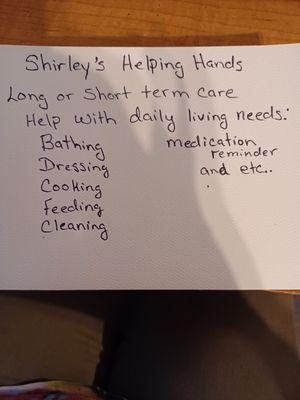 Shirley's Helping Hands
Long or Short term Care
Help with daily living needs:
Bathing
Dressing
Cooking
Feeding
Cleaning
medication
reminder
and etc..